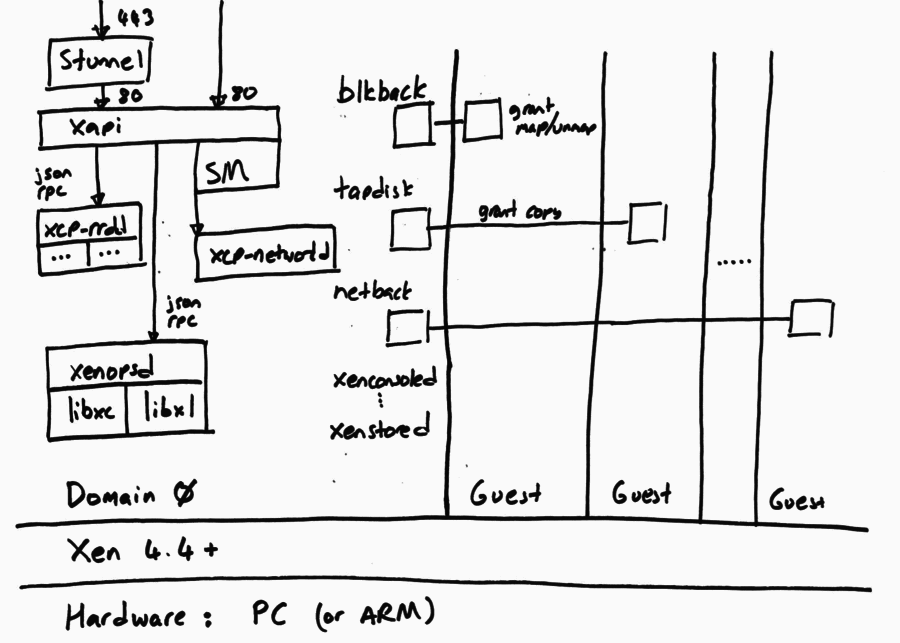 443
Stunnel
80
80
xapi
SM
json
rpc
xcp-rrdd
... ...
xcp-networkd
json
rpc
xenopsd
libxc libxl
blkback
grant
map/unmap
tapdisk
grant copy
.....
netback
xenconsoled
⋮
xenstored
Domain 0
Guest Guest Guest
Xen 4.4+
Hardware: PC (or ARM)